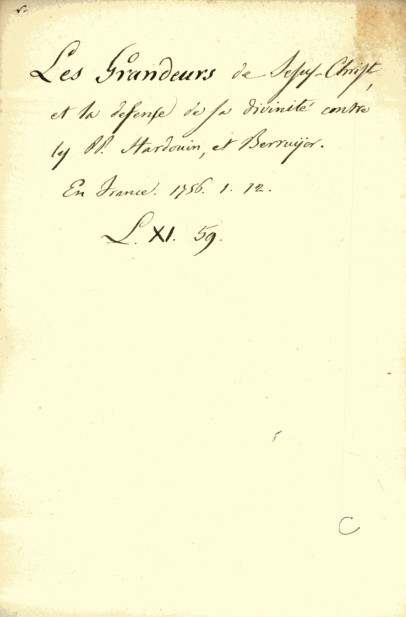 Les Grandeurs de Jesus-Christ,
et la defense de sa divinité contre
les PP. Hardouin, et Berruijer.
En France. 1756. 1. 12.
L. XI. 59.
C